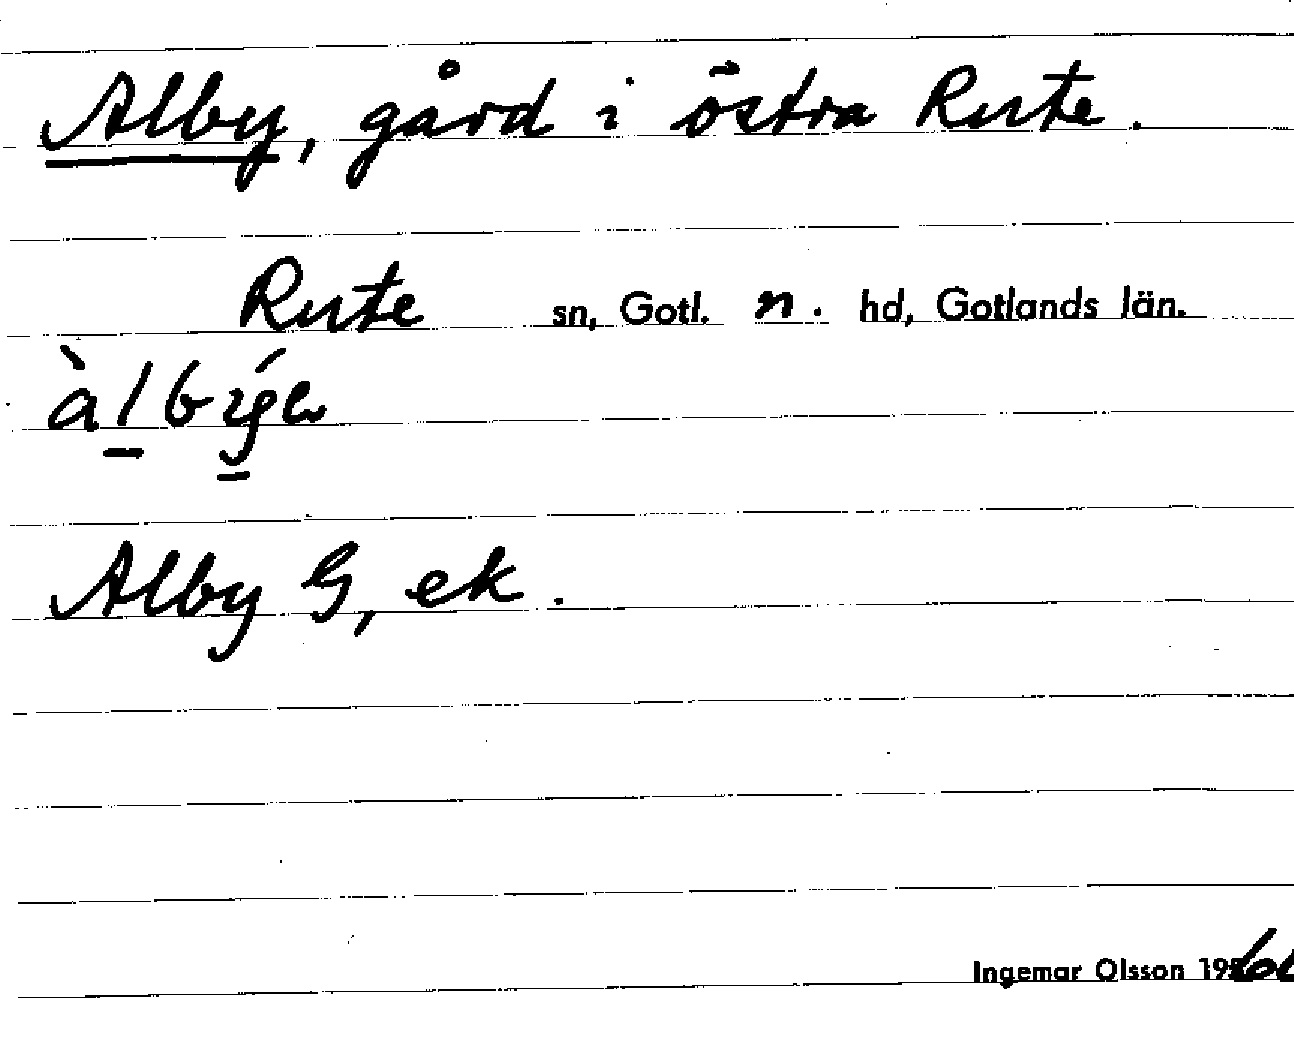 Alby, gård i östra Rute.
Rute sn, Gotl. n. hd, Gotlands län.
Alby G, ek.
Ingemar Olsson